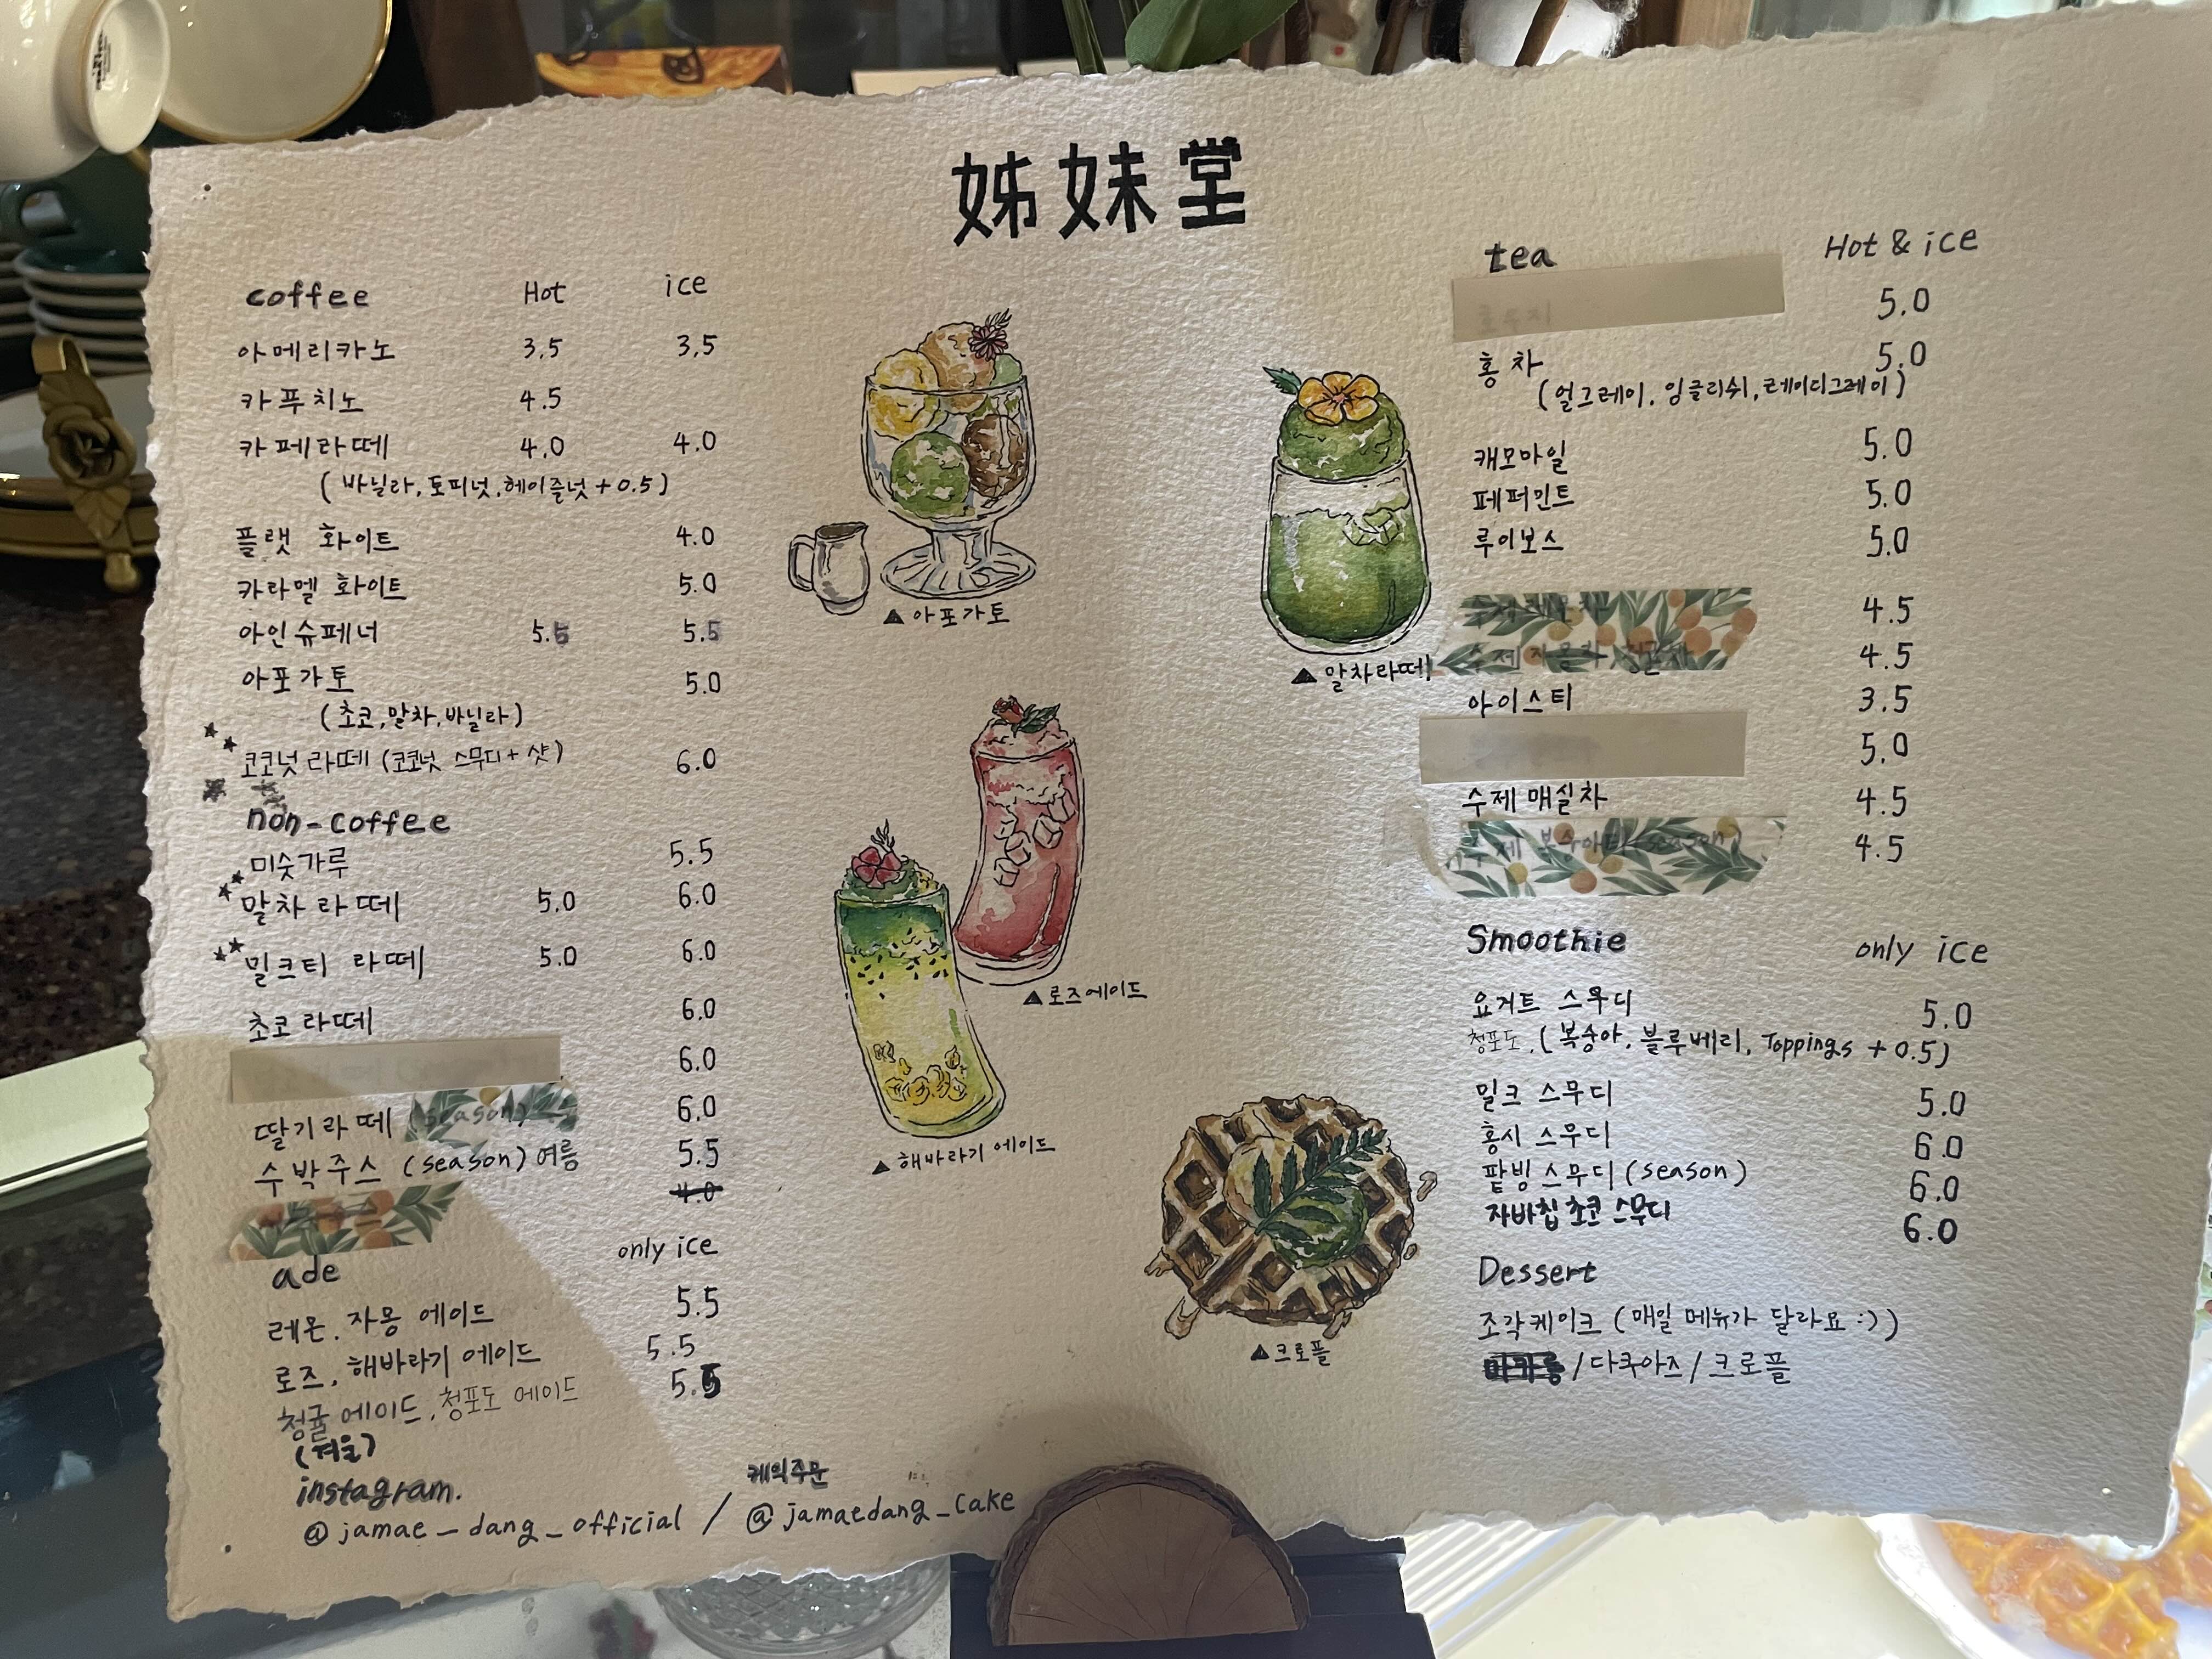 姊妹堂
coffee Hot ice
아메리카노 3.5 3.5
카푸치노 4.5
카페라떼 4.0 4.0
(바닐라, 토피넛, 헤이즐넛 +0.5)
플랫 화이트 4.0
카라멜 화이트 5.0
아인슈페너 5.5 5.5
아포가토 5.0
(초코, 말차, 바닐라)
코코넛 라떼 (코코넛 스무디 + 샷) 6.0
non-coffee
미숫가루 5.5
말차 라떼 5.0 6.0
밀크티 라떼 5.0 6.0
초코 라떼 6.0
6.0
딸기라떼 (season) 6.0
수박주스 (season) 여름 5.5
4.0
ade only ice
레몬, 자몽 에이드 5.5
로즈, 해바라기 에이드 5.5
청귤 에이드, 청포도 에이드 5.5
(겨울)
instagram.
케익주문
@jamae_dang_official / @jamaedang_cake
▲ 아포가토
▲ 말차라떼
▲ 로즈에이드
▲ 해바라기 에이드
▲ 크로플
tea Hot & ice
5.0
홍차 5.0
(얼그레이, 잉글리쉬, 레이디그레이)
캐모마일 5.0
페퍼민트 5.0
루이보스 5.0
4.5
4.5
아이스티 3.5
5.0
수제 매실차 4.5
수제 복숭아티 (season) 4.5
Smoothie only ice
요거트 스무디 5.0
청포도, (복숭아, 블루베리, Toppings +0.5)
밀크 스무디 5.0
홍시 스무디 6.0
팥빙스무디 (season) 6.0
자바칩 초코 스무디 6.0
Dessert
조각케이크 (매일 메뉴가 달라요 :))
/ 다쿠아즈 / 크로플